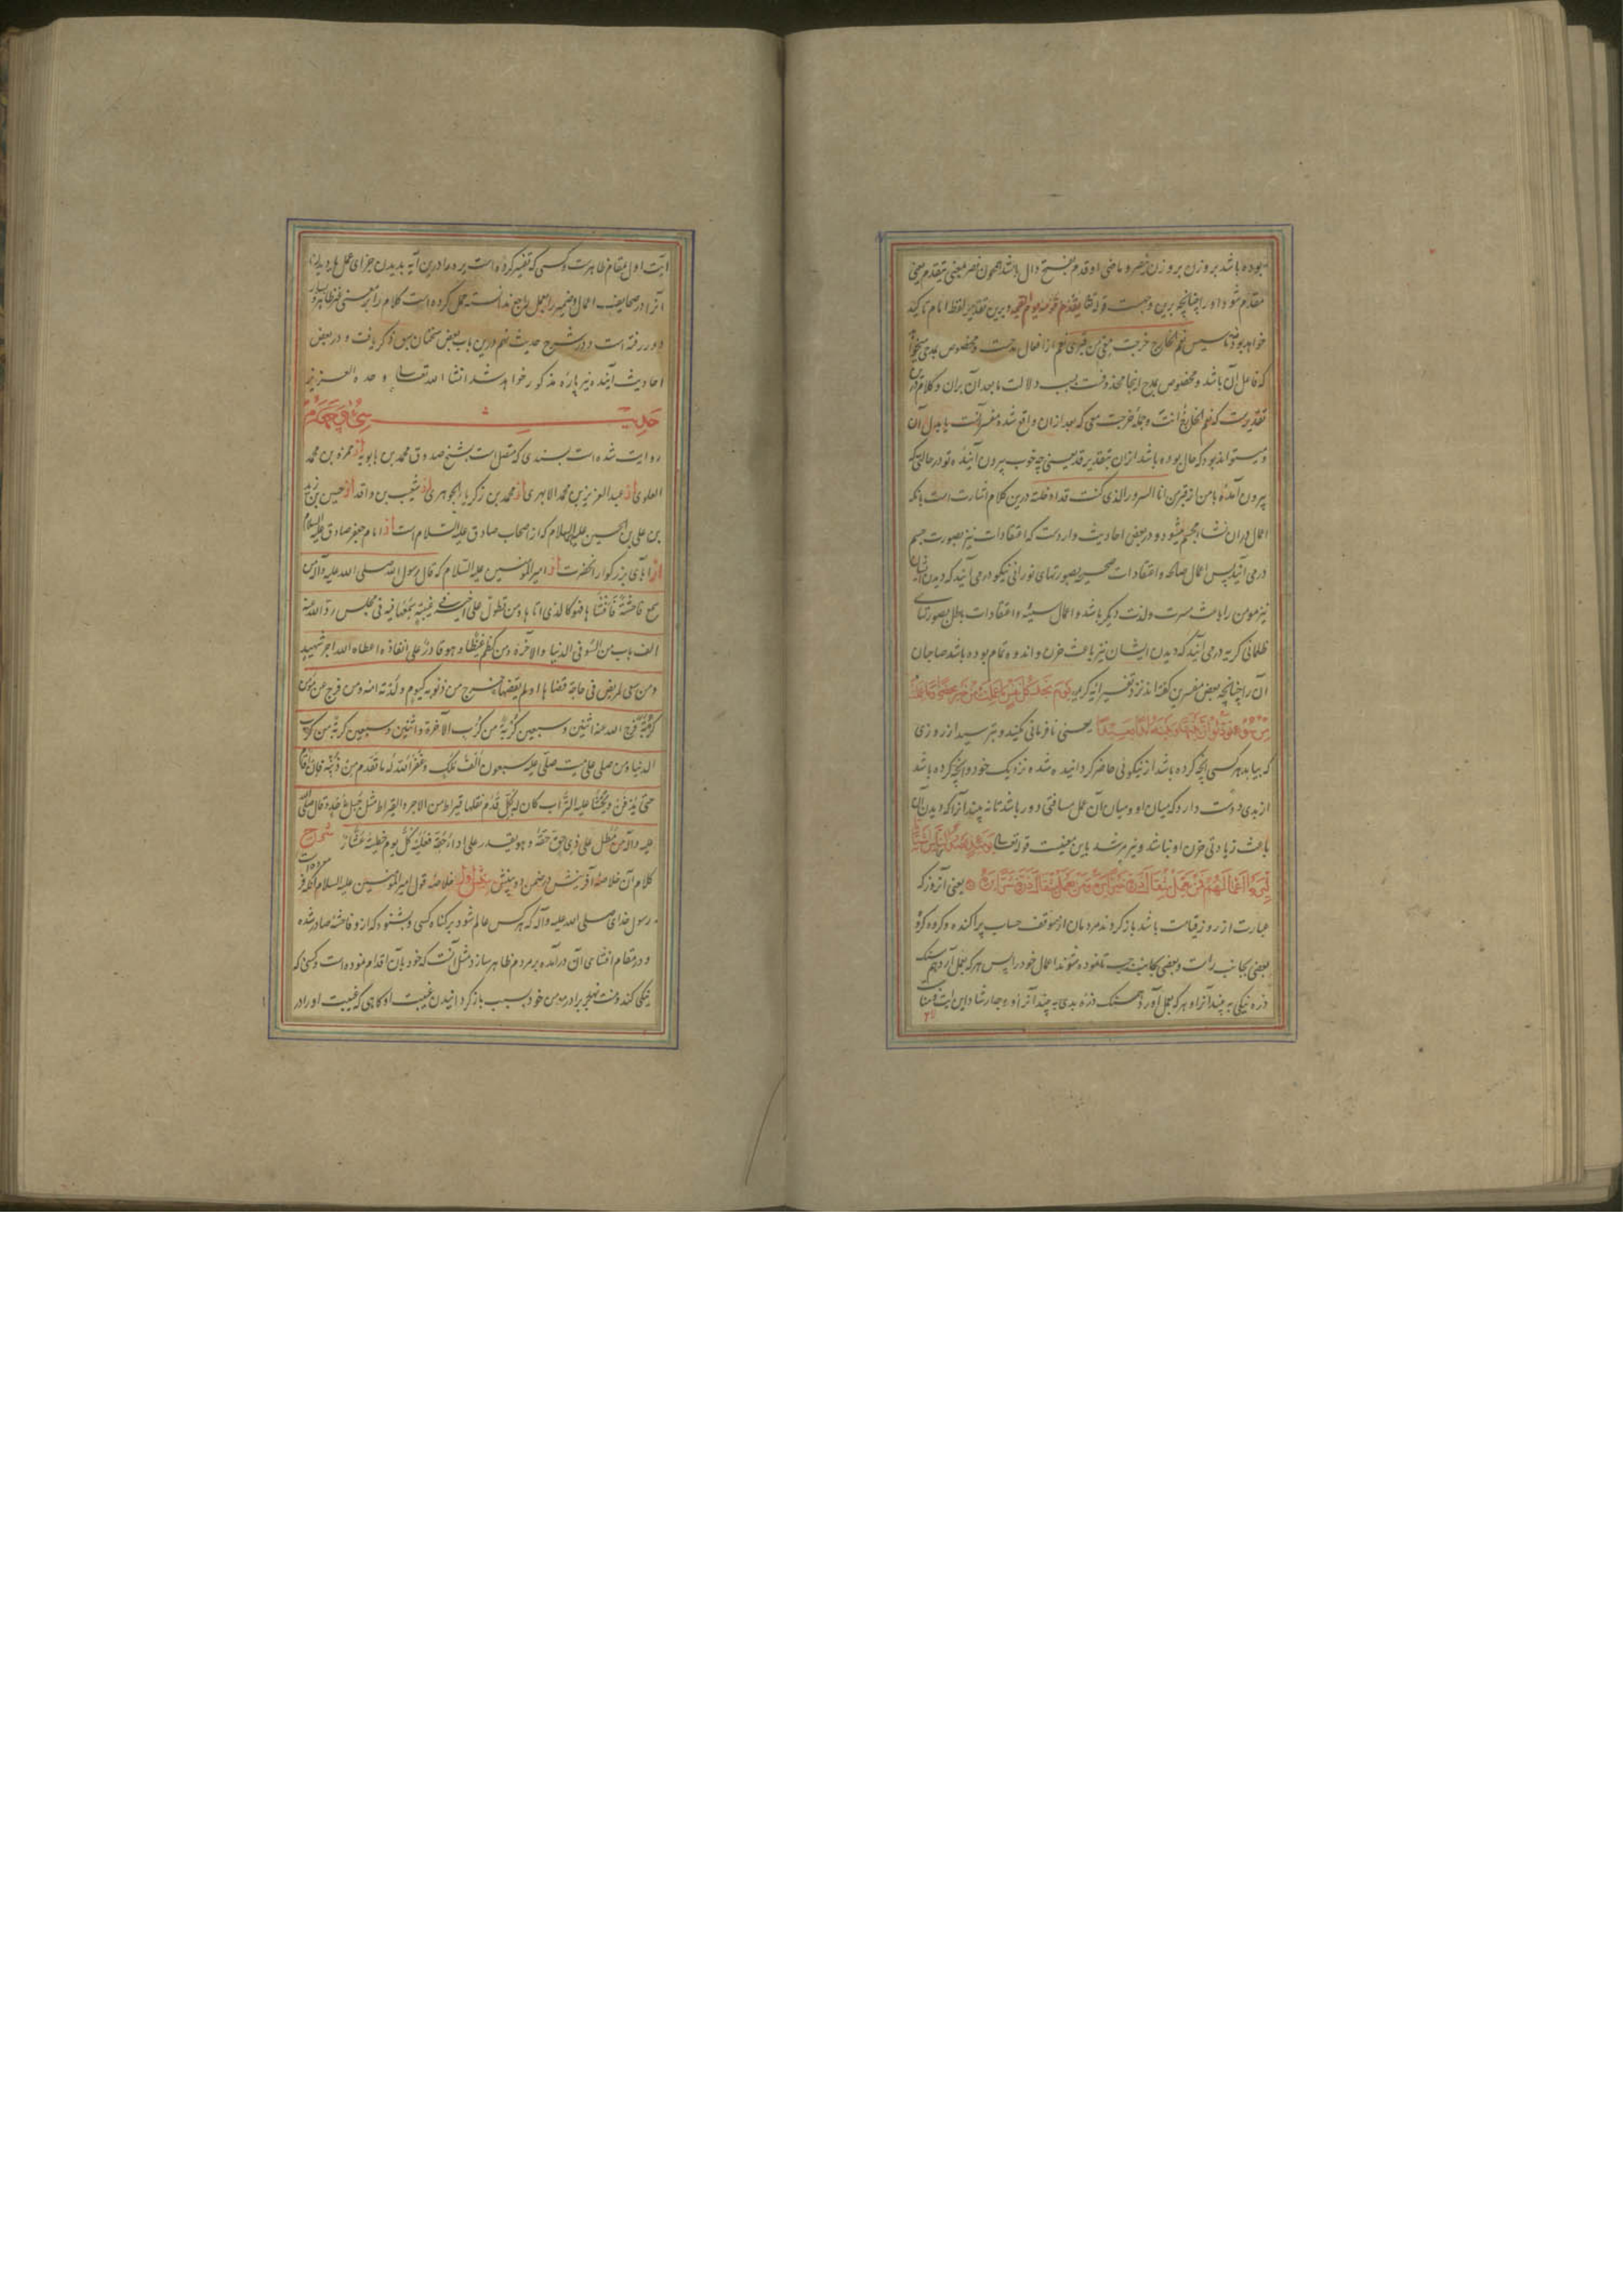 بوده باشد بر وزن ینصر و ماضی او قدم بفتح دال باشد همچون نصر بمعنی یتقدم یعنی
مقدم شود او را چنانچه برین وجهست قوله تعالی یقدم قومه یوم القیمه و برین تقدیر لفظ امام تاکید
خواهد بود نه تاسیس نعم الخارج خرجت معی من قبری نعم از افعال مدحست و مخصوص بمدح
که فاعل آن باشد و مخصوص بمدح اینجا محذوفست بسبب دلالت مابعد آن بران و کلام
تقدیرست که نعم الخارج انت و جمله خرجت معی که بعد ازان واقع شده مفسر آنست یا بدل آن
و میتواند بود که حال بوده باشد ازان بتقدیر قد یعنی چه خوب بیرون آینده تو در حالتی که
بیرون آمده با من از قبر من انا السرور الذی کنت ادخلته درین کلام اشارت است بانکه
اعمال دران نشاء مجسم میشود و در بعضی احادیث واردست که اعتقادات نیز بصورت جسم
درمی آیند پس اعمال صالحه و اعتقادات صحیحه بصورتهای نورانی نیکو درمی آیند که دیدن
نیز مومن را باعث مسرت و لذت دیگر باشد و اعمال سیئه و اعتقادات باطل بصورتهای
ظلمانی کریه درمی آیند که دیدن ایشان نیز باعث حزن و اندوه تمام بوده باشد صاحبان
آن را چنانچه بعض مفسرین گفته اند نزد تفسیر ایه کریمه یوم تجد کل نفس ما عملت من خیر محضرا و ما عملت
من سوء تود لو ان بینها و بینه امدا بعیدا یعنی نافرمانی مکنید و بترسید از روزی
که بیابد هر کسی انچه کرده باشد از نیکوئی حاضر گردانیده شده نزدیک خود و انچه کرده باشد
از بدی دوست دارد که میان او و میان آن عمل مسافتی دور باشد تا نه بیند آنرا که دیدن آن
باعث زیادتی حزن او نباشد و نیز مرشد باین معنیست قوله تعالی یومئذ یصدر الناس اشتاتا
لیروا اعمالهم فمن یعمل مثقال ذرة خیرا یره و من یعمل مثقال ذرة شرا یره یعنی آنروز که
عبارت از روز قیامت باشد باز گردند مردمان از موقف حساب پراکنده و گروه گروه
بعضی بجانب راست و بعضی بجانب چپ تا نموده شوند اعمال خود را پس هر که بعمل آرد هم سنک
ذره نیکی به بیند آنرا و هر که بعمل آورد هم سنک ذره بدی به بیند آنرا و جار شتاتا این ایت
ایت اول بمقام ظاهرست و کسی که تفسیر کرده است یره را درین آیه بدیدن جزای عمل یا دیدن
آنرا در صحایف اعمال و ضمیر را بعمل راجع ندانسته حمل کرده است کلام را بر معنی غیر ظاهر و بسیار
دور رفته است و در شرح حدیث نهم درین باب بعض سخنان سبق ذکر یافت و در بعض
احادیث آینده نیز پاره مذکور خواهد شد انشا الله تعالی وحده العزیز
حدیث سی و چهارم
روایت شده است بسندی که متصل است بشیخ صدوق محمد بن بابویه از حمزه بن محمد
العلوی از عبد العزیز بن محمد الابهری از محمد بن زکریا الجوهری از شعیب بن واقد از حسین بن زید
بن علی بن الحسین علیه السلام که از اصحاب صادق علیه السلام است از امام جعفر صادق علیه السلام
از آبای بزرگوار انحضرت از امیر المومنین علیه السلام که قال رسول الله صلی الله علیه و آله من
سمع فاحشة فافشاها فهو کالذی اتاها و من تطول علی اخیه فی غیبة سمعها فیه فی مجلس رد الله عنه
الف باب من السوء فی الدنیا و الآخرة و من کظم غیظا و هو قادر علی انفاذه اعطاه الله اجر شهید
و من سعی لمریض فی حاجة قضاها او لم یقضها خرج من ذنوبه کیوم ولدته امه و من فرج عن مؤمن
کربة فرج الله عنه اثنین و سبعین کربة من کرب الآخرة و اثنین و سبعین کربة من کرب
الدنیا و من صلی علی میت صلی علیه سبعون الف ملک و غفر الله له ما تقدم من ذنبه فان اقام
حتی یدفن و یحثا علیه التراب کان له بکل قدم نقلها قیراط من الاجر و القیراط مثل جبل احد و قال صلی الله
علیه و آله من مطل علی ذی حق حقه و هو یقدر علی اداء حقه فعلیه کل یوم خطیئة عشار شرح
کلام آن خلاصه آفرینش در ضمن دو بینش بینش اول خلاصه قول امیر المومنین علیه السلام آنکه فرموده است
رسول خدای صلی الله علیه و آله که هر کس عالم شود بر گناه کسی و بشنود که ازو فاحشه صادر شده
و در مقام افشای آن درآمده بر مردم ظاهر سازد مثل آنست که خود بآن اقدام نموده است و کسی که
نیکی کند و منت نهد بر برادر مومن خود بسبب باز گردانیدن غیبت او گاهی که غیبت او را در